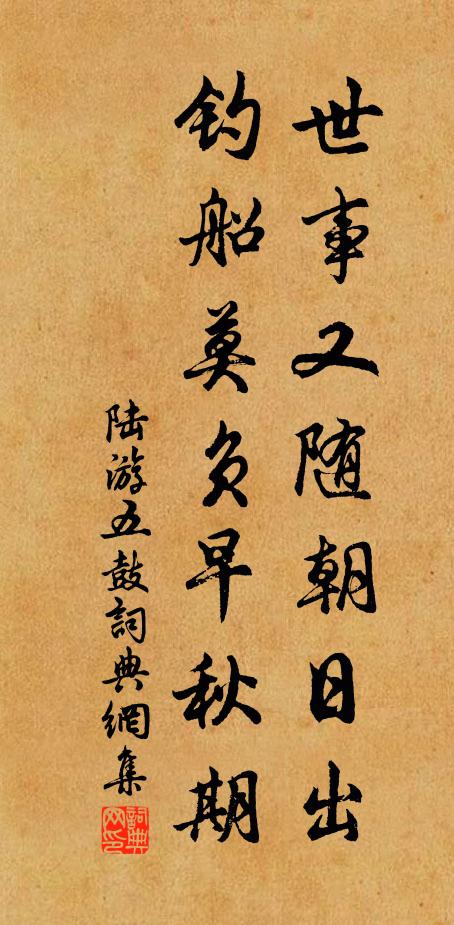 世事又随朝日出
钓船莫负早秋期
陆游五鼓詞典網集
詞典网印